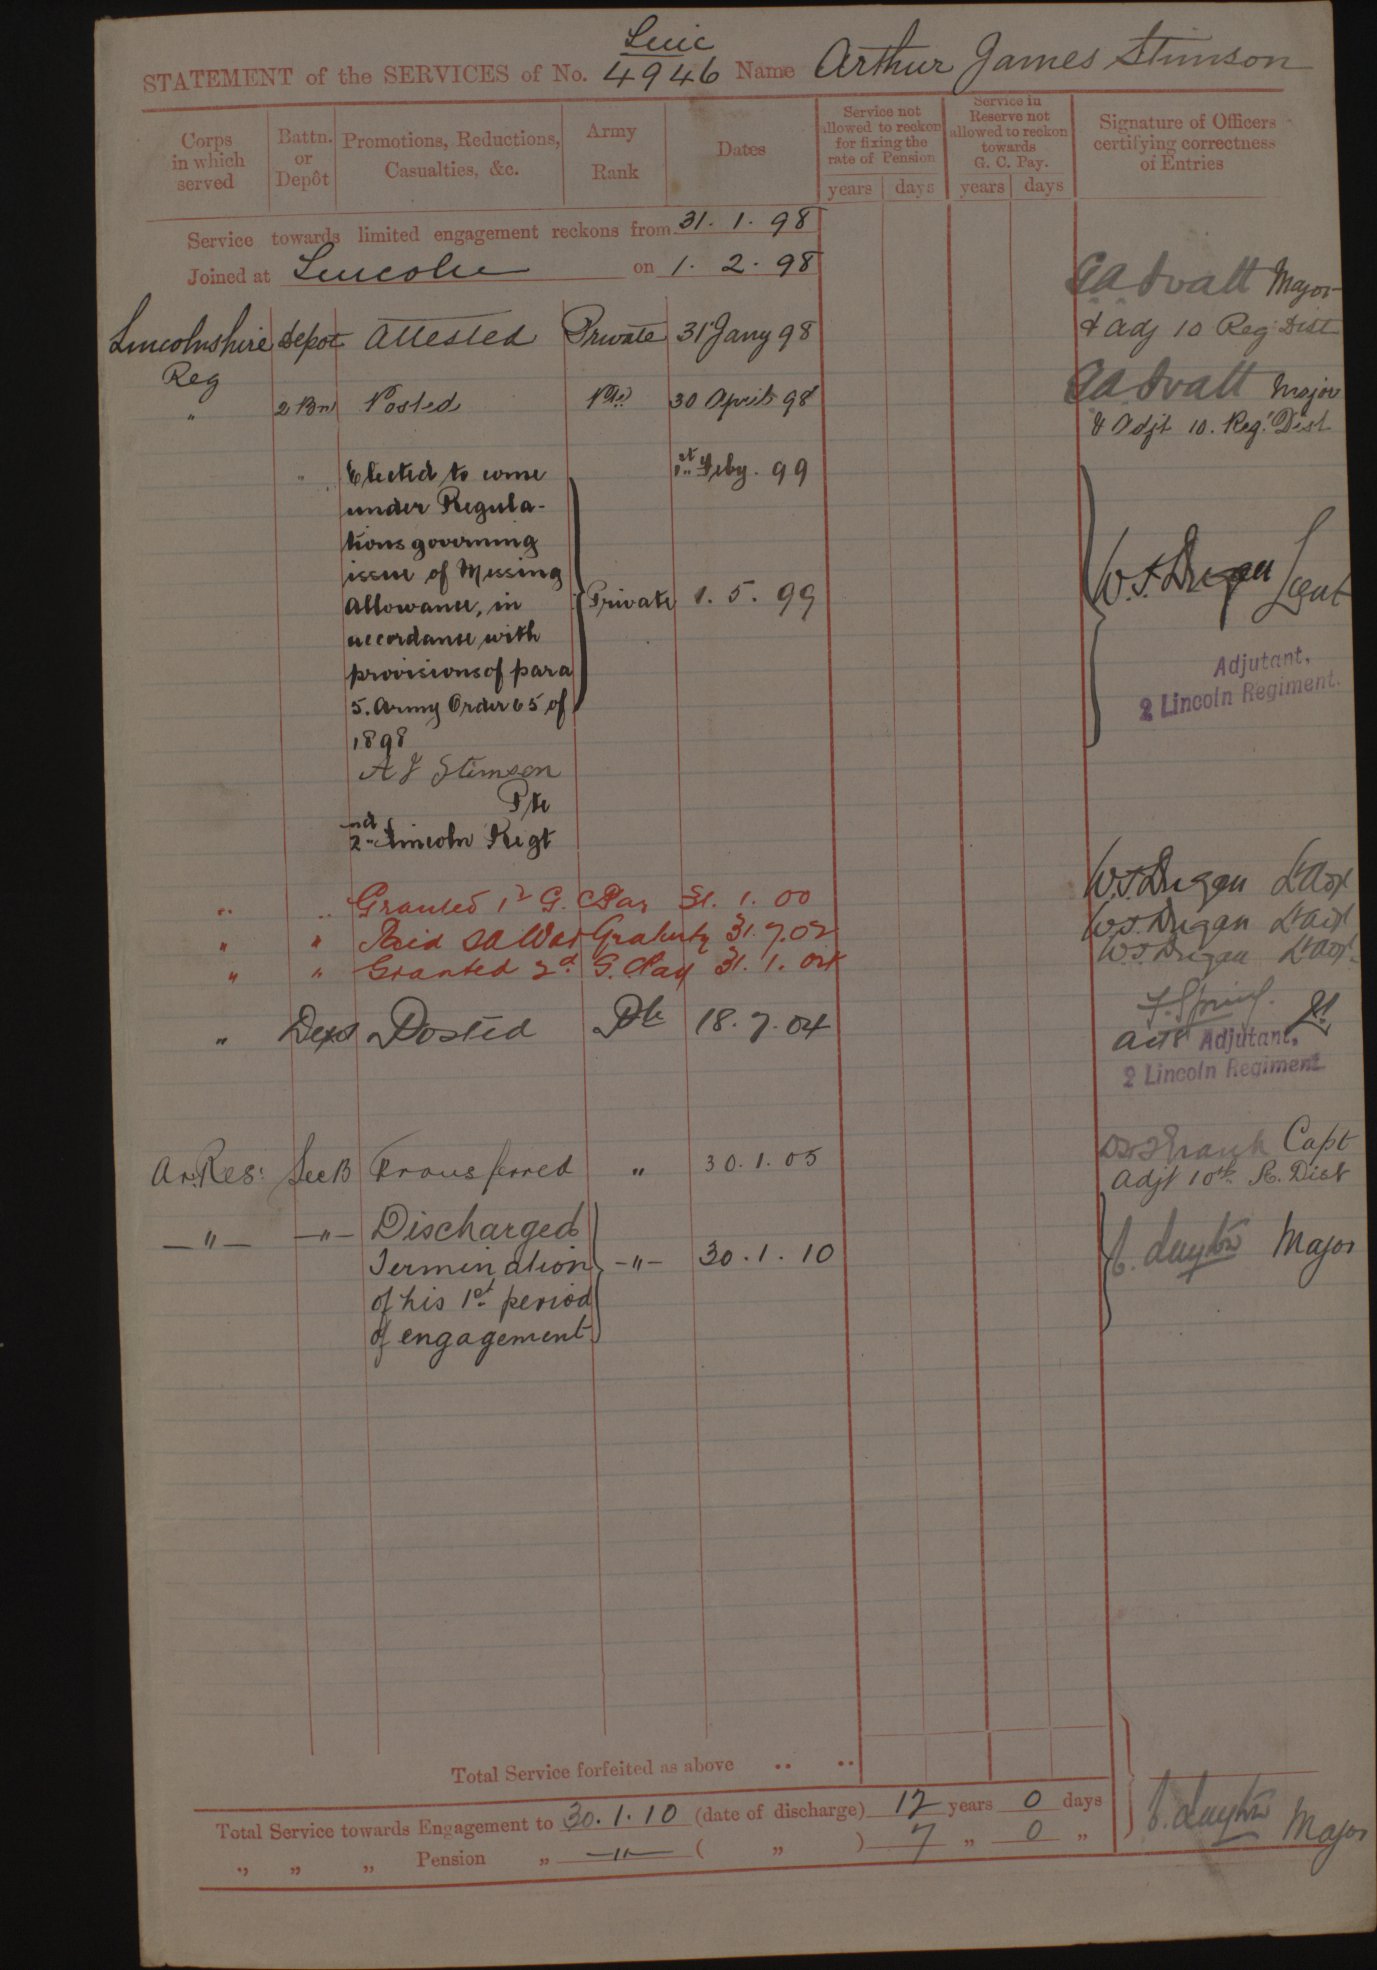 Linc
STATEMENT of the SERVICES of No. 4946 Name Arthur James Stimson
Corps in which served
Battn. or Depôt
Promotions, Reductions, Casualties, &c.
Army Rank
Dates
Service not allowed to reckon for fixing the rate of Pension
Service in Reserve not allowed to reckon towards G. C. Pay.
Signature of Officers certifying correctness of Entries
years days years days
Service towards limited engagement reckons from 31. 1. 98
Joined at Lincoln on 1. 2. 98
Major
Lincolnshire depot Attested Private 31 Jany 98 & Adj 10 Reg Dist
Reg
Major
" 2 Bn Posted Pte 30 April 98 & Adjt 10. Reg. Dist
" Elected to come 1st Feby. 99
under Regula-
tions governing
issue of Messing
Allowance, in Private 1. 5. 99 Lieut
accordance with
provisions of para Adjutant,
5. Army Order 65 of 2 Lincoln Regiment.
1898
A J Stimson
Pte
2nd Lincoln Regt
" " Granted 1st G. C. Pay 31. 1. 00
" " Paid SA War Gratuity 31. 7. 02
" " Granted 2d G. C. Pay 31. 1. 04
" Depot Posted Pte 18. 7. 04 Lt
Adjutant,
2 Lincoln Regiment
Capt
A. Res: Sec B Transferred " 30. 1. 05 Adjt 10th R. Dist
—"— —"— Discharged
Termination —"— 30. 1. 10 Major
of his 1st period
of engagement
Total Service forfeited as above .. ..
Total Service towards Engagement to 30. 1. 10 (date of discharge) 12 years 0 days
" " " Pension " —"— ( " ) 7 " 0 "
Major